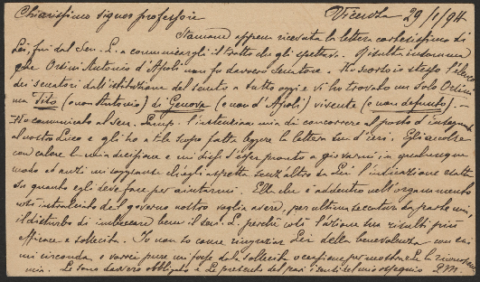 Chiarissimo signor professore Vienola 29/1/94
Stamane appena ricevuta la lettera cortesissima di
Lei fui dal Sen. L. a comunicargli il Botto che gli spettava.
que Orsini Antonio d'Ascoli non fu davvero Senatore. Ho scorso io stesso l'elenco
dei senatori dall'istituzione del senato a tutto oggi e vi ho trovato un solo Orsini
ma Tito (non Antonio) di Genova (non d'Ascoli) vivente (e non defunto). —
Ho comunicato al sen. l'intenzione mia di concorrere al posto d'insegn.
al nostro Liceo e gli ho a tale scopo fatta leggere la lettera sua d'ieri. Egli accolse
con calore la mia decisione e mi disse d'esser pronto a giovarmi in qualunque
modo ed anzi mi soggiunse ch'egli aspetta senz'altro da Lei l'indicazione esatta
su quanto egli deve fare per aiutarmi. Ella che è addentro nell'organamento
del governo nostro voglia avere, per ultima seccatura da parte mia,
il disturbo di imbeccare bene il sen. L. perchè così l'azione sua risulti più
efficace e sollecita. Io non so come ringraziar Lei della benevolenza con cui
mi circonda, e vorrei pure mi fosse data sollecita occasione per mostrarle la riconoscenza
mia. Le sono davvero obbligato e Le presento del pari i sensi del mio ossequio P.M.